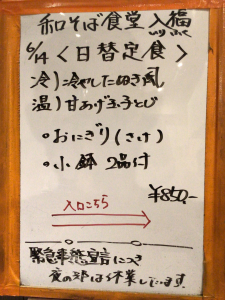 和そば食堂 入福
いり ふく
6/14 <日替定食>
冷)冷やしたぬき風
温)甘あげ玉子とじ
・おにぎり(さけ)
・小鉢 2品付
¥850.-
入口こちら
緊急事態宣言につき
夜の部は休業しています